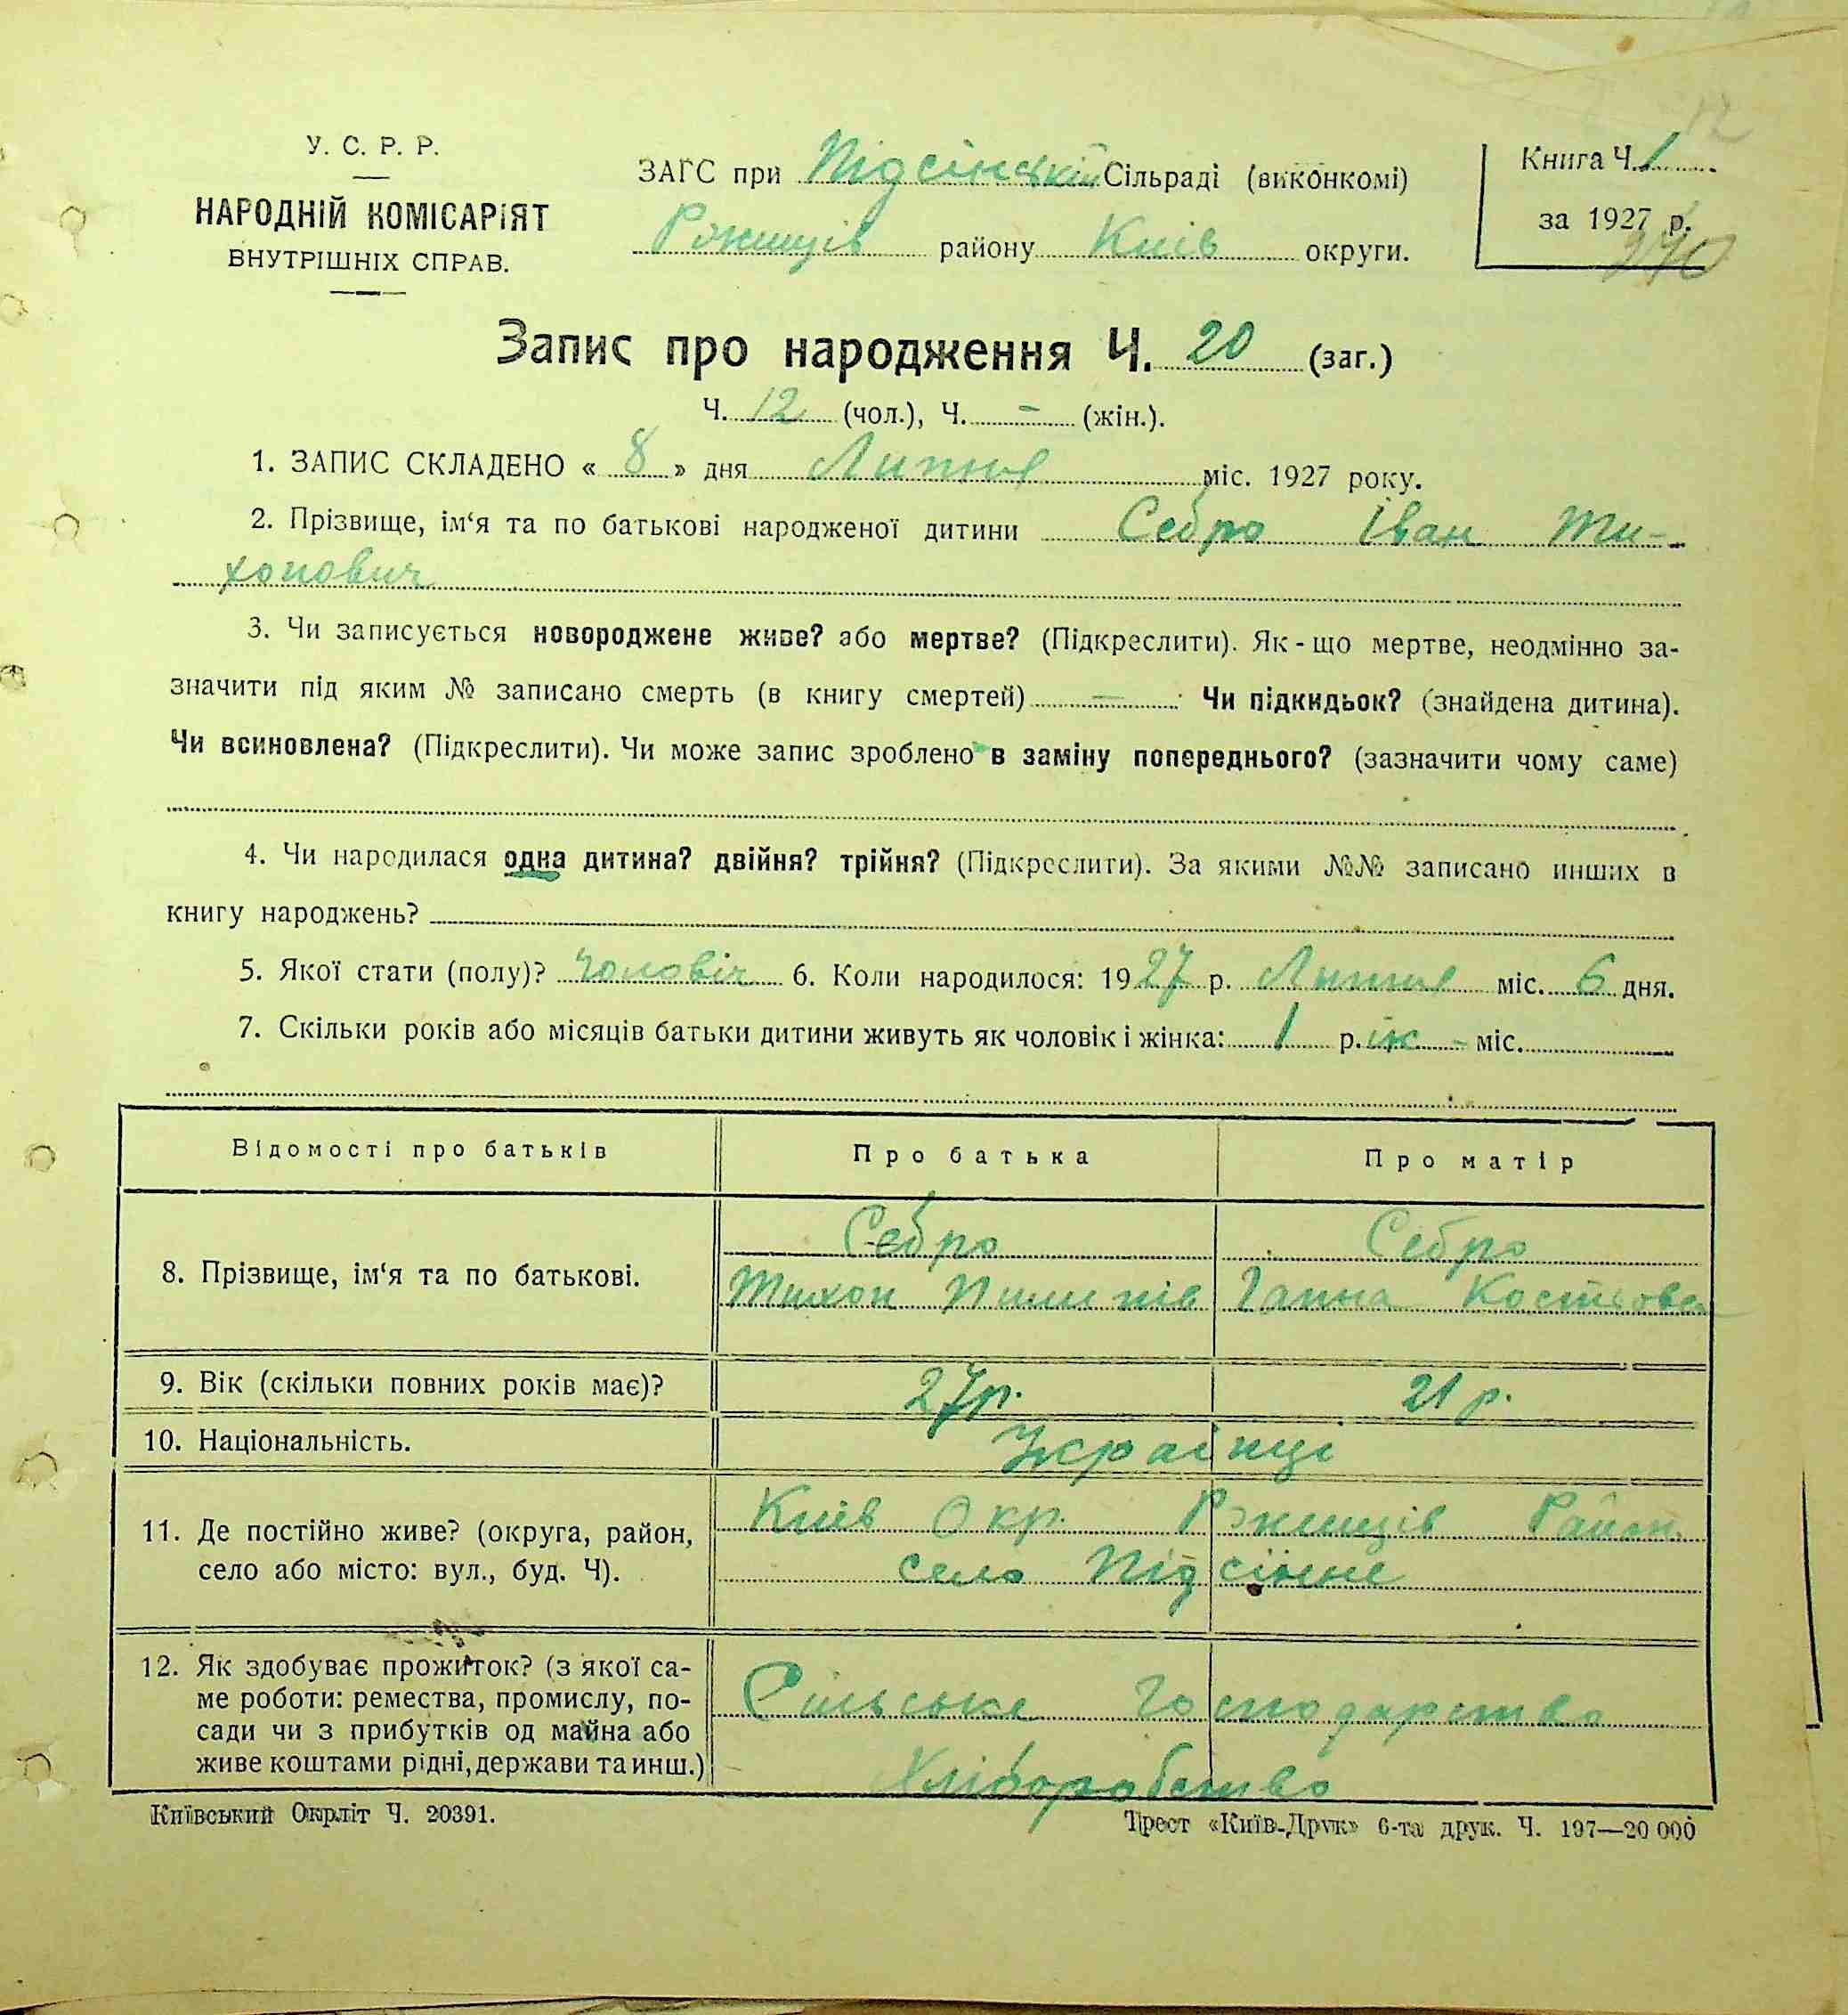 У. С. Р. Р.
НАРОДНІЙ КОМІСАРІЯТ
ВНУТРІШНІХ СПРАВ.
ЗАГС при Підсінській Сільраді (виконкомі)
Ржищів району Київ округи.
Книга Ч. 1
за 1927 р.
270
12
Запис про народження Ч. 20 (заг.)
Ч. 12 (чол.), Ч. - (жін.).
1. ЗАПИС СКЛАДЕНО « 8 » дня Липня міс. 1927 року.
2. Прізвище, ім‘я та по батькові народженої дитини Себро Іван Ти-
хонович
3. Чи записується новороджене живе? або мертве? (Підкреслити). Як-що мертве, неодмінно за-
значити під яким № записано смерть (в книгу смертей) — Чи підкидьок? (знайдена дитина).
Чи всиновлена? (Підкреслити). Чи може запис зроблено в заміну попереднього? (зазначити чому саме)
4. Чи народилася одна дитина? двійня? трійня? (Підкреслити). За якими №№ записано инших в
книгу народжень?
5. Якої стати (полу)? Чоловіч 6. Коли народилося: 1927 р. Липня міс. 6 дня.
7. Скільки років або місяців батьки дитини живуть як чоловік і жінка: 1 р.ік - міс.
Відомості про батьків Про батька Про матір
8. Прізвище, ім‘я та по батькові.
Себро
Тихон Пилипів
Себро
Ганна Костьова
9. Вік (скільки повних років має)? 27р. 21 р.
10. Національність. Українці
11. Де постійно живе? (округа, район,
село або місто: вул., буд. Ч).
Київ Окр. Ржищів Район.
село Підсінне
12. Як здобуває прожиток? (з якої са-
ме роботи: ремества, промислу, по-
сади чи з прибутків од майна або
живе коштами рідні, держави та инш.)
Сільське Господарство
Хліборобство
Київський Окрліт Ч. 20391.
Трест «Київ-Друк» 6-та друк. Ч. 197—20 000